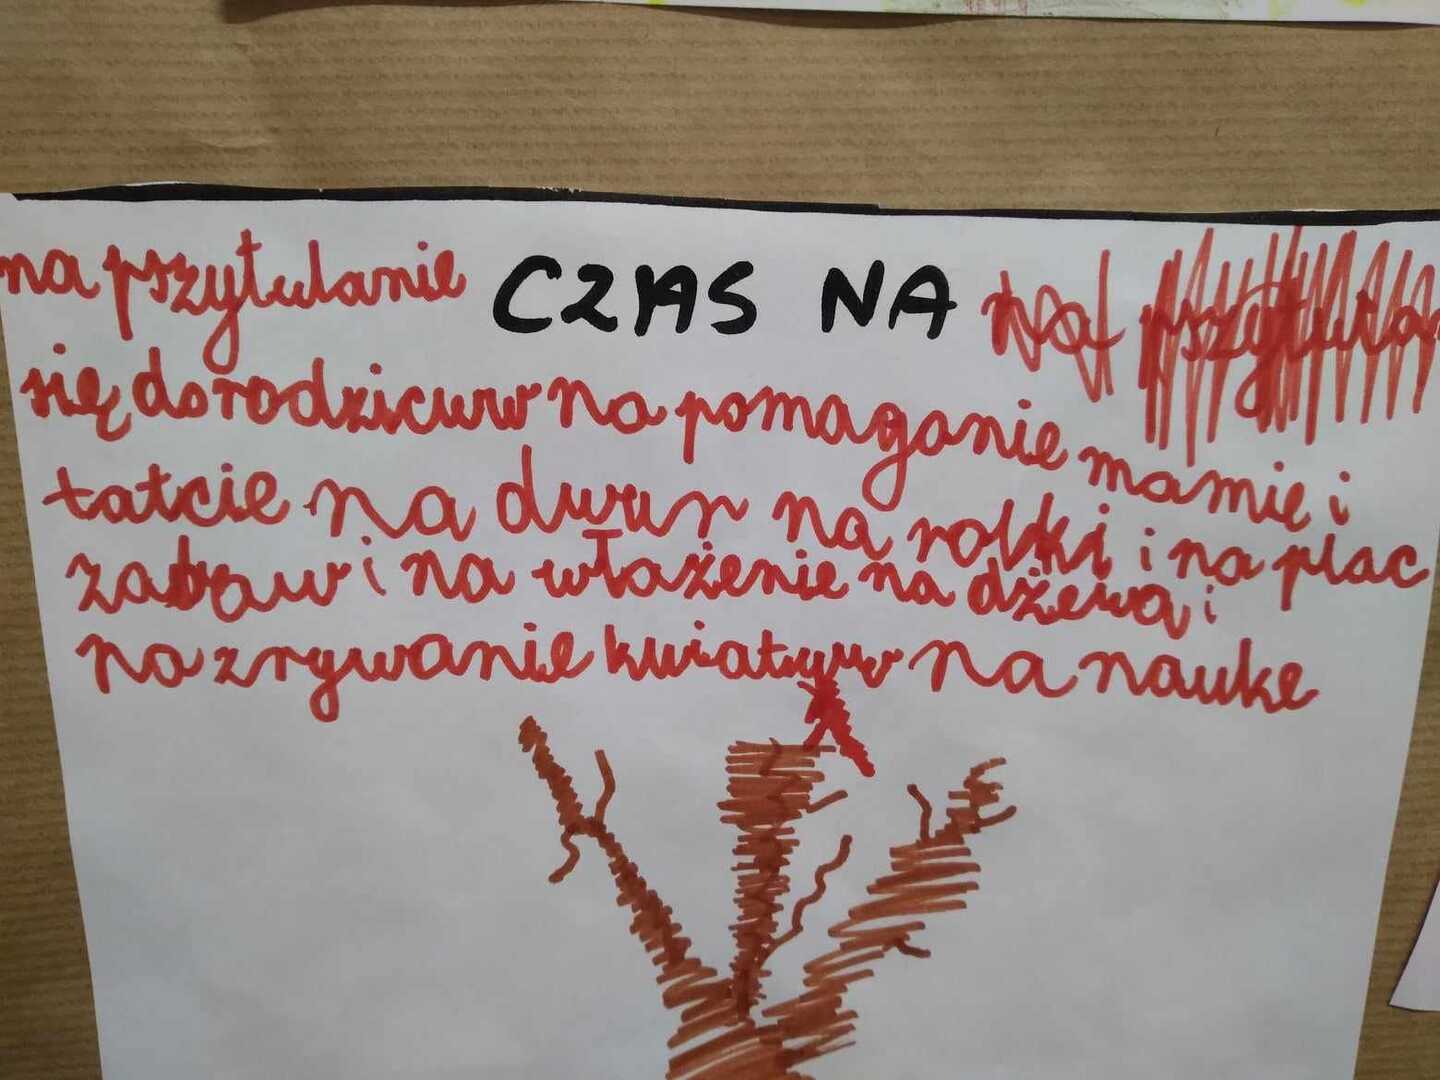 CZAS NA
na przytulanie
się do rodzicuw na pomaganie mamie i
tatcie na dwur na rolki i na plac
zabaw i na włażenie na dżewa i
na zrywanie kwiatuw na nauke